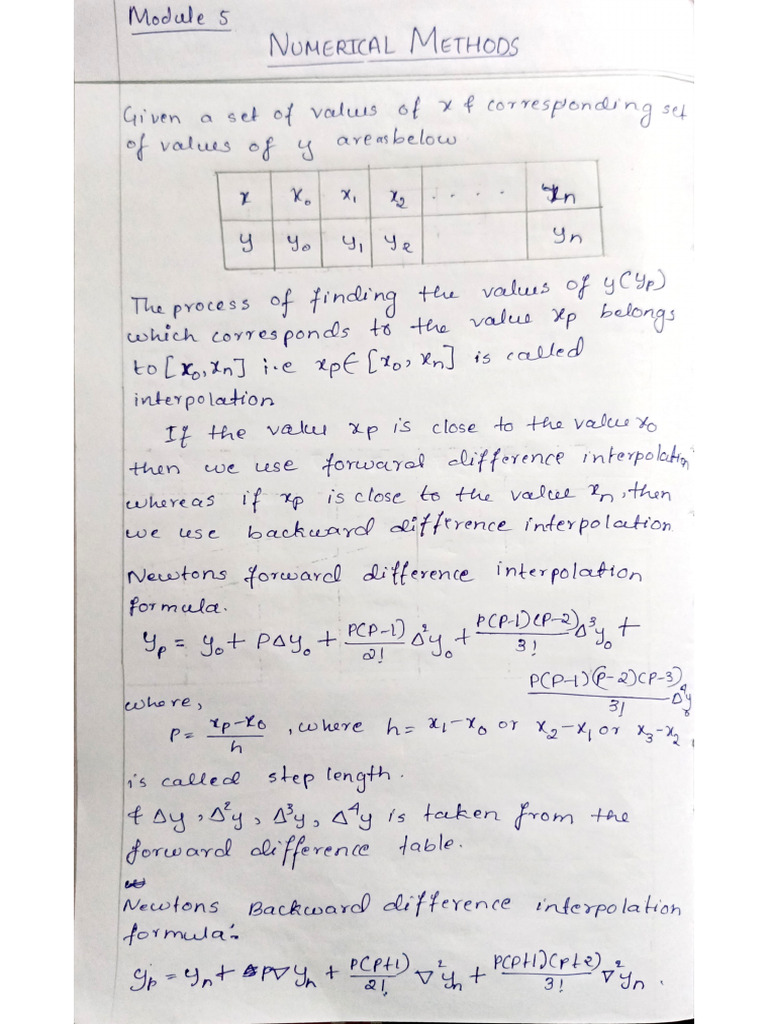 Module 5
NUMERICAL METHODS
Given a set of values of x & corresponding set
of values of y are as below
x x₀ x₁ x₂ .... xn
y y₀ y₁ y₂ yn
The process of finding the values of y(yp)
which corresponds to the value xp belongs
to [x₀, xn] i.e xp∈ [x₀, xn] is called
interpolation
If the value xp is close to the value x₀
then we use forward difference interpolation
whereas if xp is close to the value xn, then
we use backward difference interpolation
Newtons forward difference interpolation
formula.
yp = y₀ + PΔy₀ + P(P-1)/2! Δ²y₀ + P(P-1)(P-2)/3! Δ³y₀ +
P(P-1)(P-2)(P-3)/3! Δ⁴y₀
where,
P = xp-x₀/h , where h = x₁-x₀ or x₂-x₁ or x₃-x₂
is called step length.
& Δy, Δ²y, Δ³y, Δ⁴y is taken from the
forward difference table.
Newtons Backward difference interpolation
formula:-
yp = yn + P∇yn + P(P+1)/2! ∇²yn + P(P+1)(P+2)/3! ∇²yn .